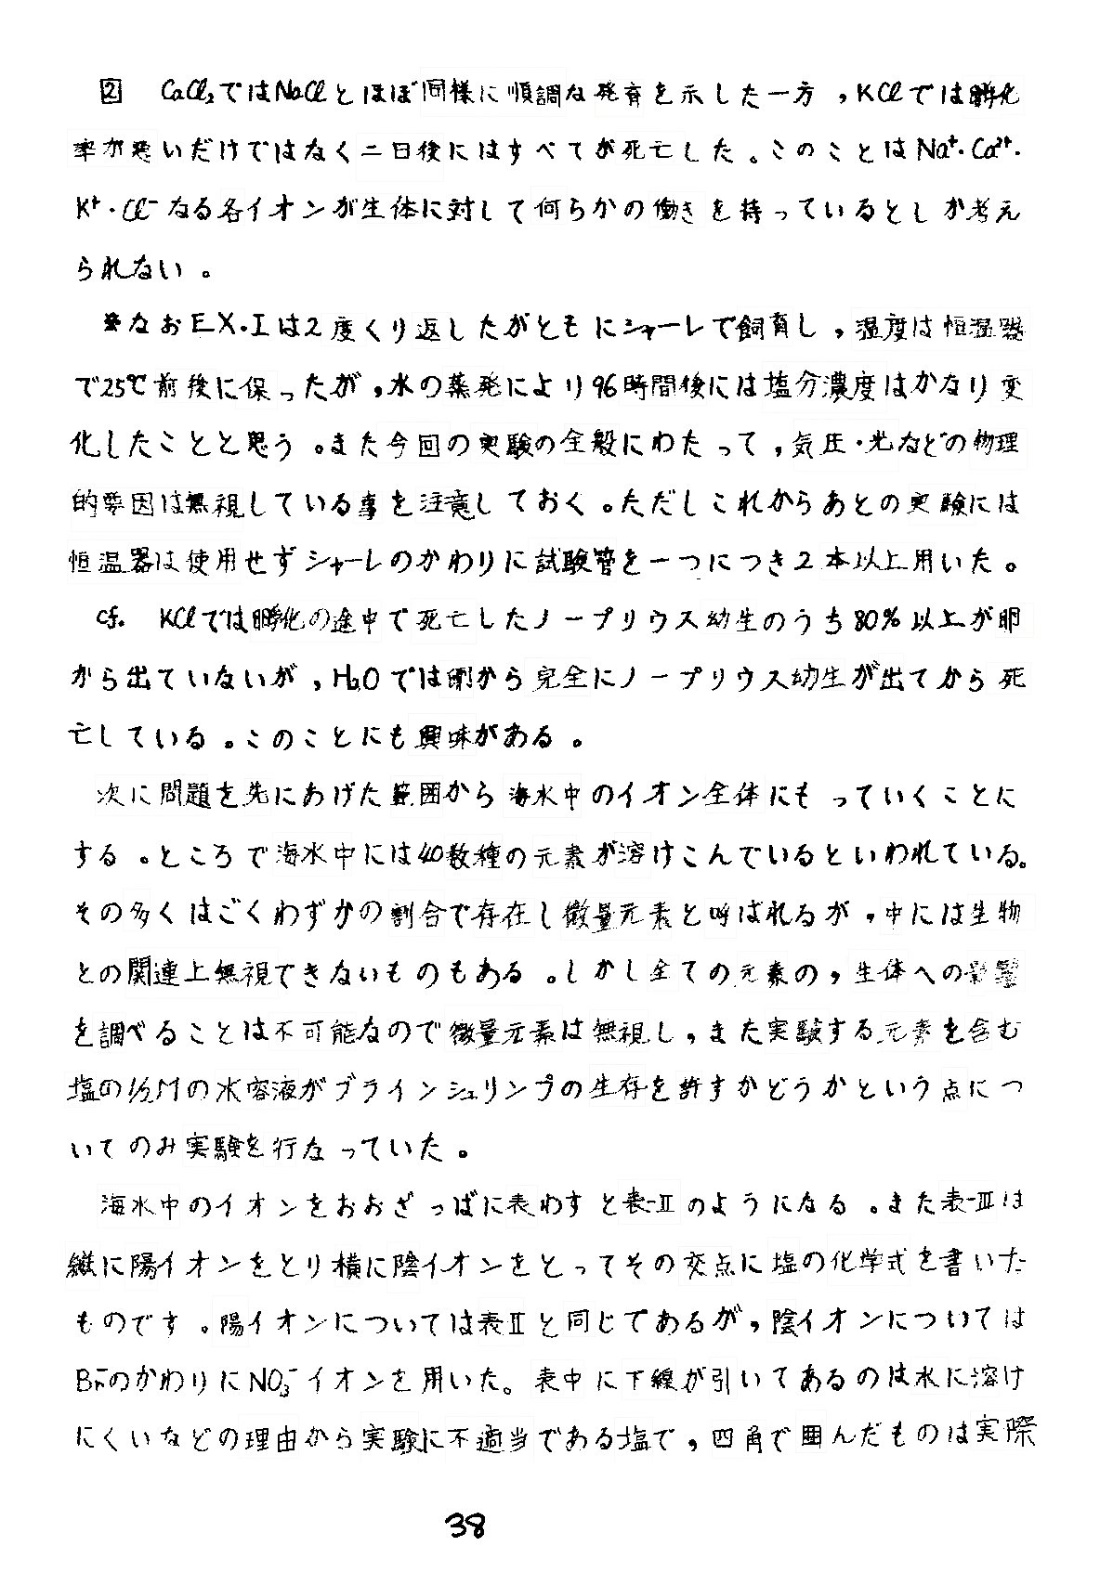 ② CaCl₂ではNaClとほぼ同様に順調な発育を示した一方，KClでは孵化
率が悪いだけではなく二日後にはすべてが死亡した。このことはNa⁺・Ca²⁺・
K⁺・Cl⁻なる各イオンが生体に対して何らかの働きを持っているとしか考え
られない。
※なおEX.Iは2度くり返したがともにシャーレで飼育し，温度は恒温器
で25℃前後に保ったが，水の蒸発により96時間後には塩分濃度はかなり変
化したことと思う。また今回の実験の全般にわたって，気圧・光などの物理
的要因は無視している事を注意しておく。ただしこれからあとの実験には
恒温器は使用せずシャーレのかわりに試験管を一つにつき2本以上用いた。
cf. KClでは孵化の途中で死亡したノープリウス幼生のうち80%以上が卵
から出ていないが，H₂Oでは卵から完全にノープリウス幼生が出てから死
亡している。このことにも興味がある。
次に問題を先にあげた範囲から海水中のイオン全体にもっていくことに
する。ところで海水中には40数種の元素が溶けこんでいるといわれている。
その多くはごくわずかの割合で存在し微量元素と呼ばれるが，中には生物
との関連上無視できないものもある。しかし全ての元素の，生体への影響
を調べることは不可能なので微量元素は無視し，また実験する元素を含む
塩の1/2Mの水溶液がブラインシュリンプの生存を許すかどうかという点につ
いてのみ実験を行なっていた。
海水中のイオンをおおざっぱに表わすと表-Ⅱのようになる。また表-Ⅲは
縦に陽イオンをとり横に陰イオンをとってその交点に塩の化学式を書いた
ものです。陽イオンについては表Ⅱと同じであるが，陰イオンについては
Br⁻のかわりにNO₃⁻イオンを用いた。表中に下線が引いてあるのは水に溶け
にくいなどの理由から実験に不適当である塩で，四角で囲んだものは実際
38